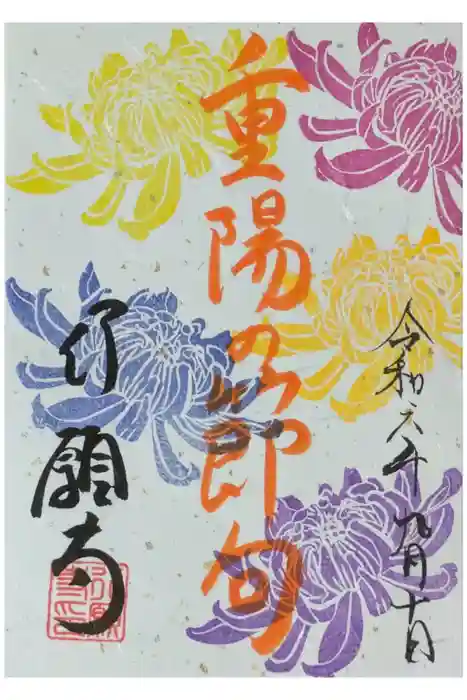 令和六年九月十日
重陽の節句
行願寺